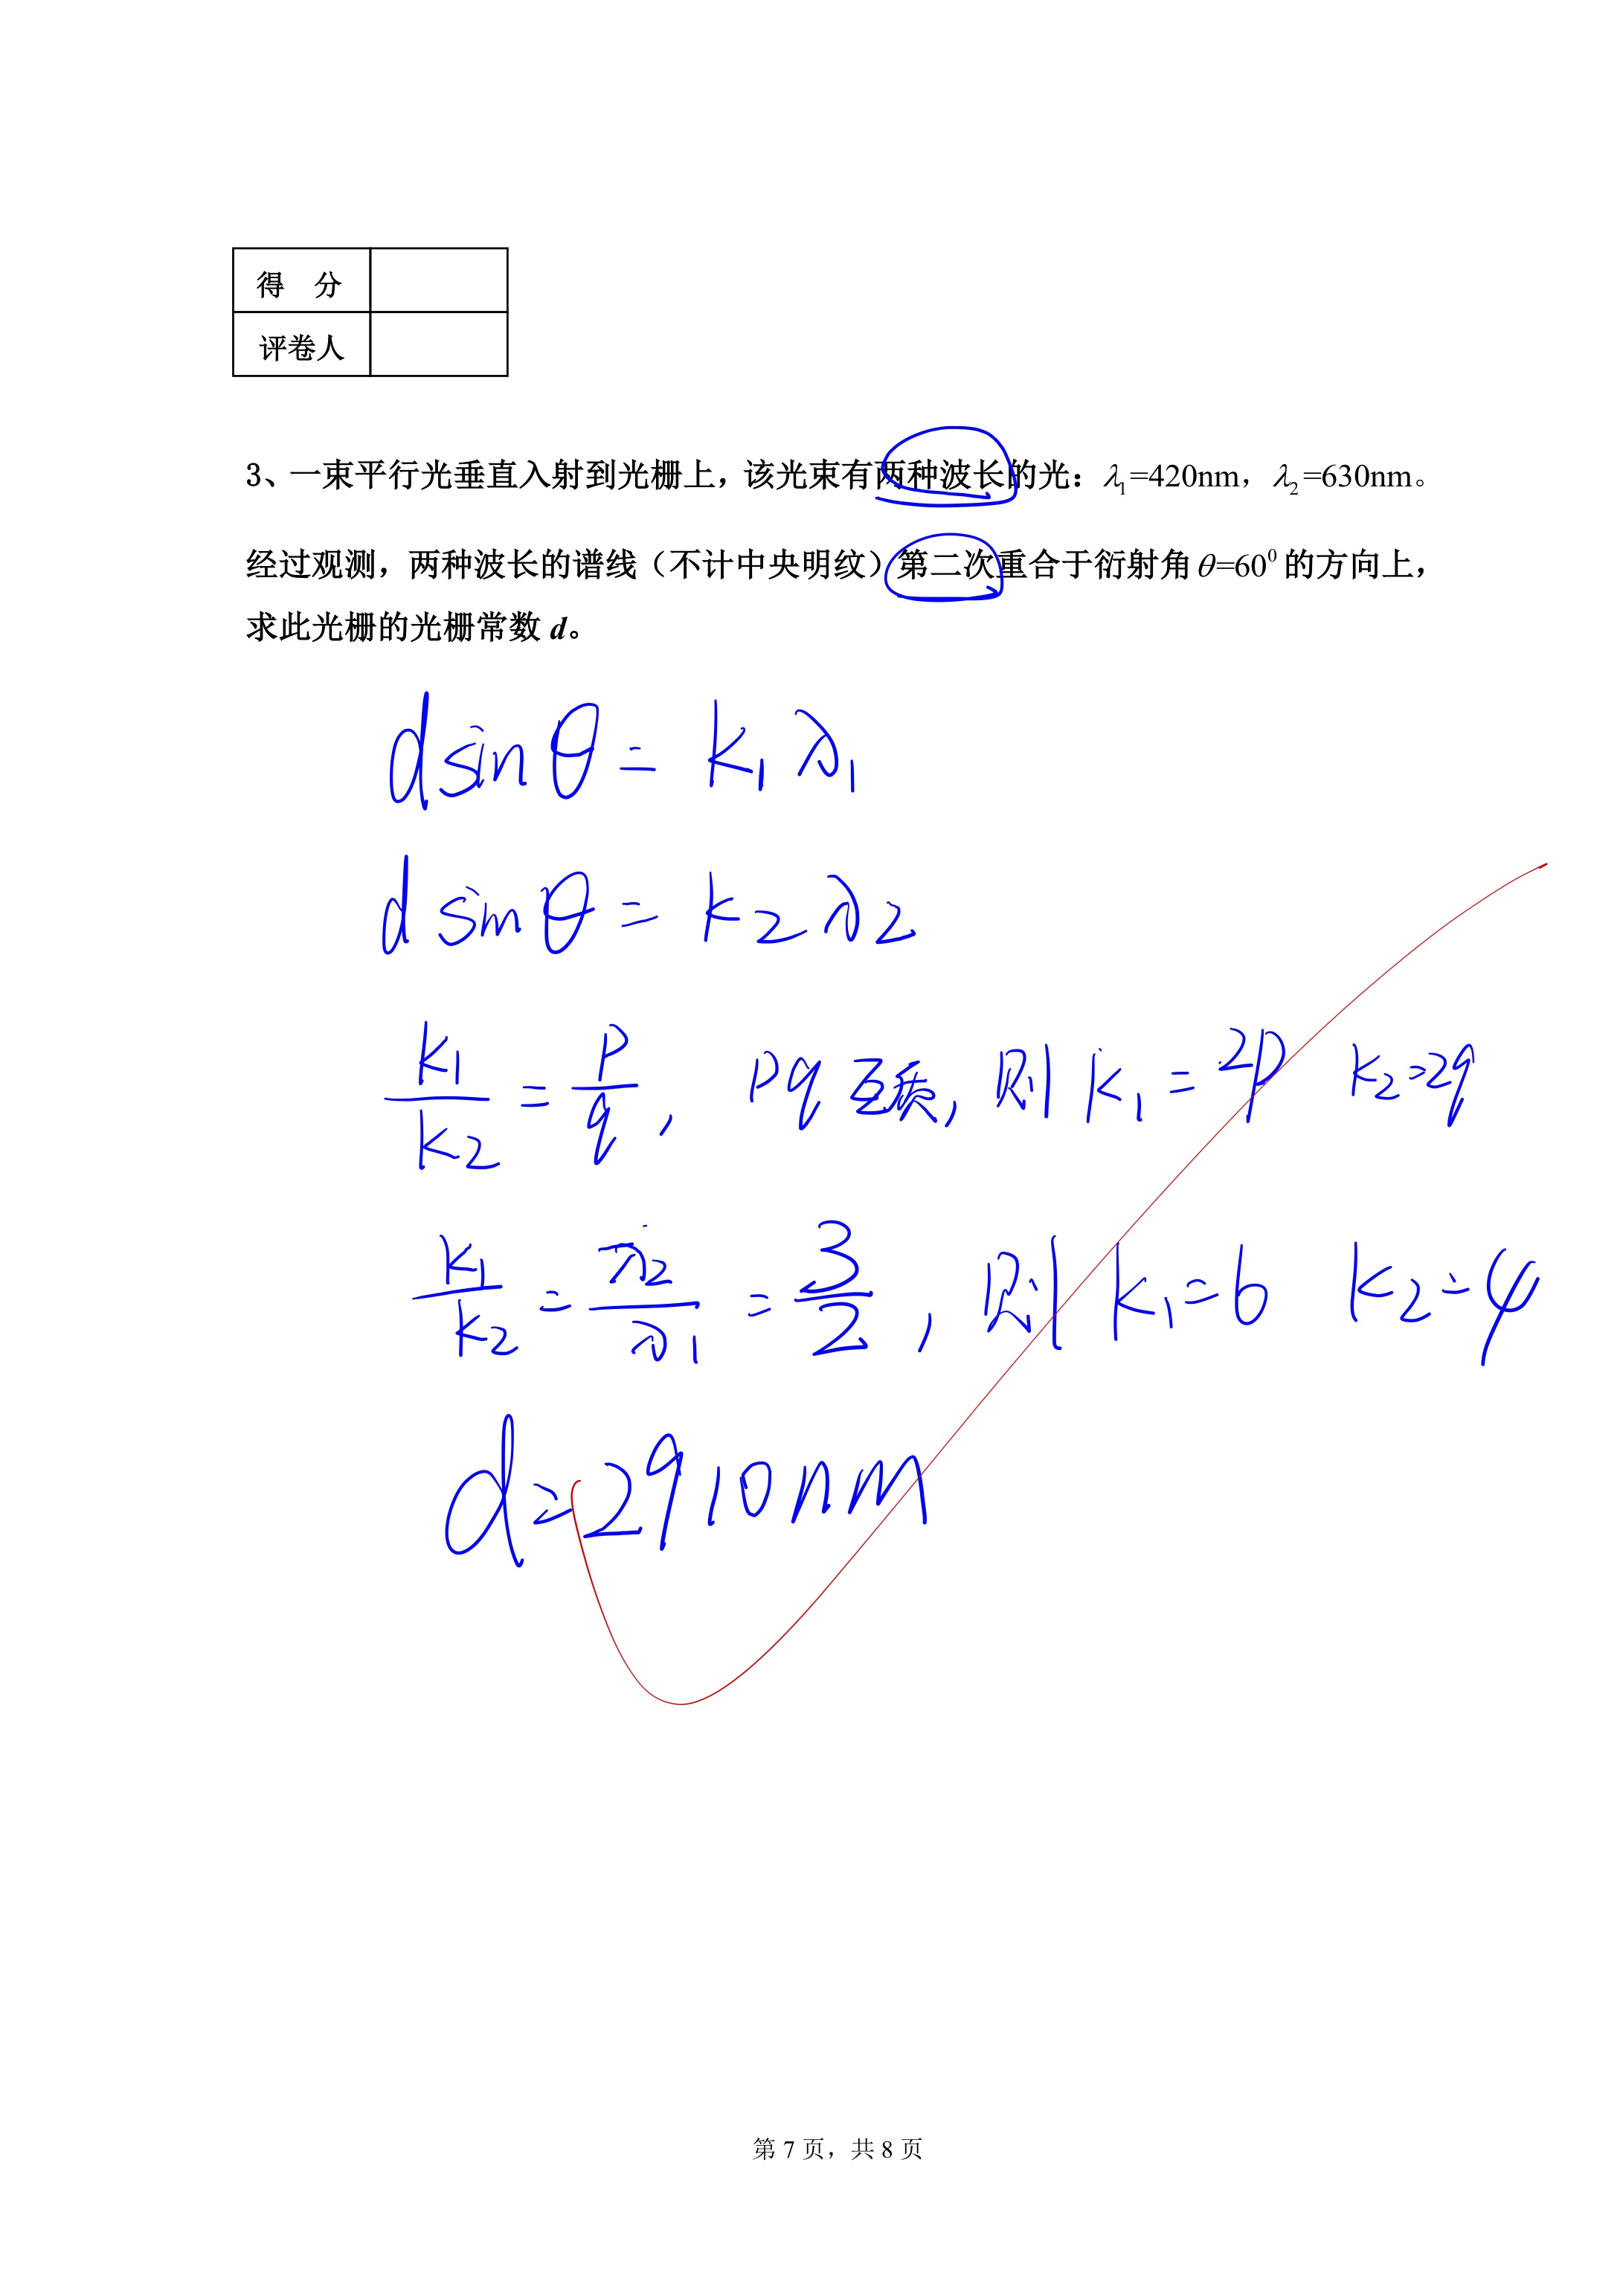 得 分
评卷人
3、一束平行光垂直入射到光栅上，该光束有两种波长的光：λ₁=420nm，λ₂=630nm。
经过观测，两种波长的谱线（不计中央明纹）第二次重合于衍射角θ=60⁰的方向上，
求此光栅的光栅常数 d。
d sinθ = k₁λ₁
d sinθ = k₂λ₂
k₁/k₂ = p/q，pq互质，则 k₁=2p k₂=2q
k₁/k₂ = λ₂/λ₁ = 3/2，则 k₁=6 k₂=4
d=2910nm
第 7 页，共 8 页